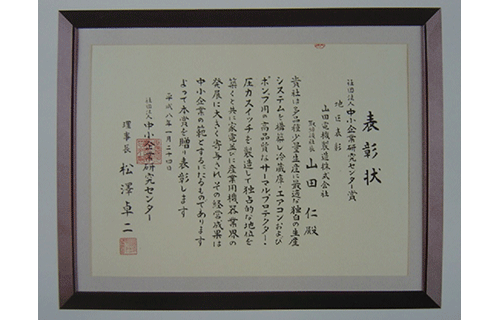 表彰状
社団法人中小企業研究センター賞
地区表彰
山田電機製造株式会社
取締役社長 山田 仁殿
貴社は多品種少量生産に最適な独自の生産
システムを構築し冷蔵庫・エアコンおよび
ポンプ用の高品質なサーマルプロテクター・
圧力スイッチを製造して独占的な地位を
築くと共に家電並びに産業用機器業界の
発展に大きく寄与されその経営成果は
中小企業の範とするにたるものであります
よって本賞を贈り表彰します
平成八年一月二十四日
社団法人中小企業研究センター
理事長 松澤卓二